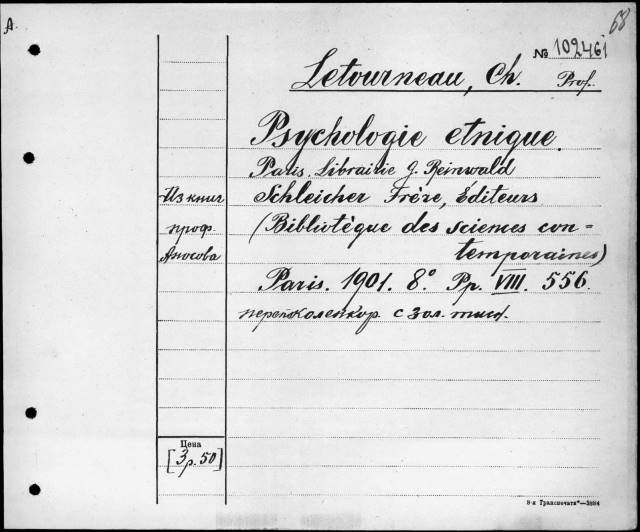 A.
68
№ 102461
Letourneau, Ch. Prof.
Psychologie etnique.
Paris. Librairie J. Reinwald
Из книг Schleicher Frère, Éditeurs
проф. (Bibliotèque des sciences con=
Аносова temporaines)
Paris. 1901. 8° Pp. VIII. 556.
пер. коленкор с зол. тисн.
Цена
[3 р. 50]
8-я Транспечати"—3894